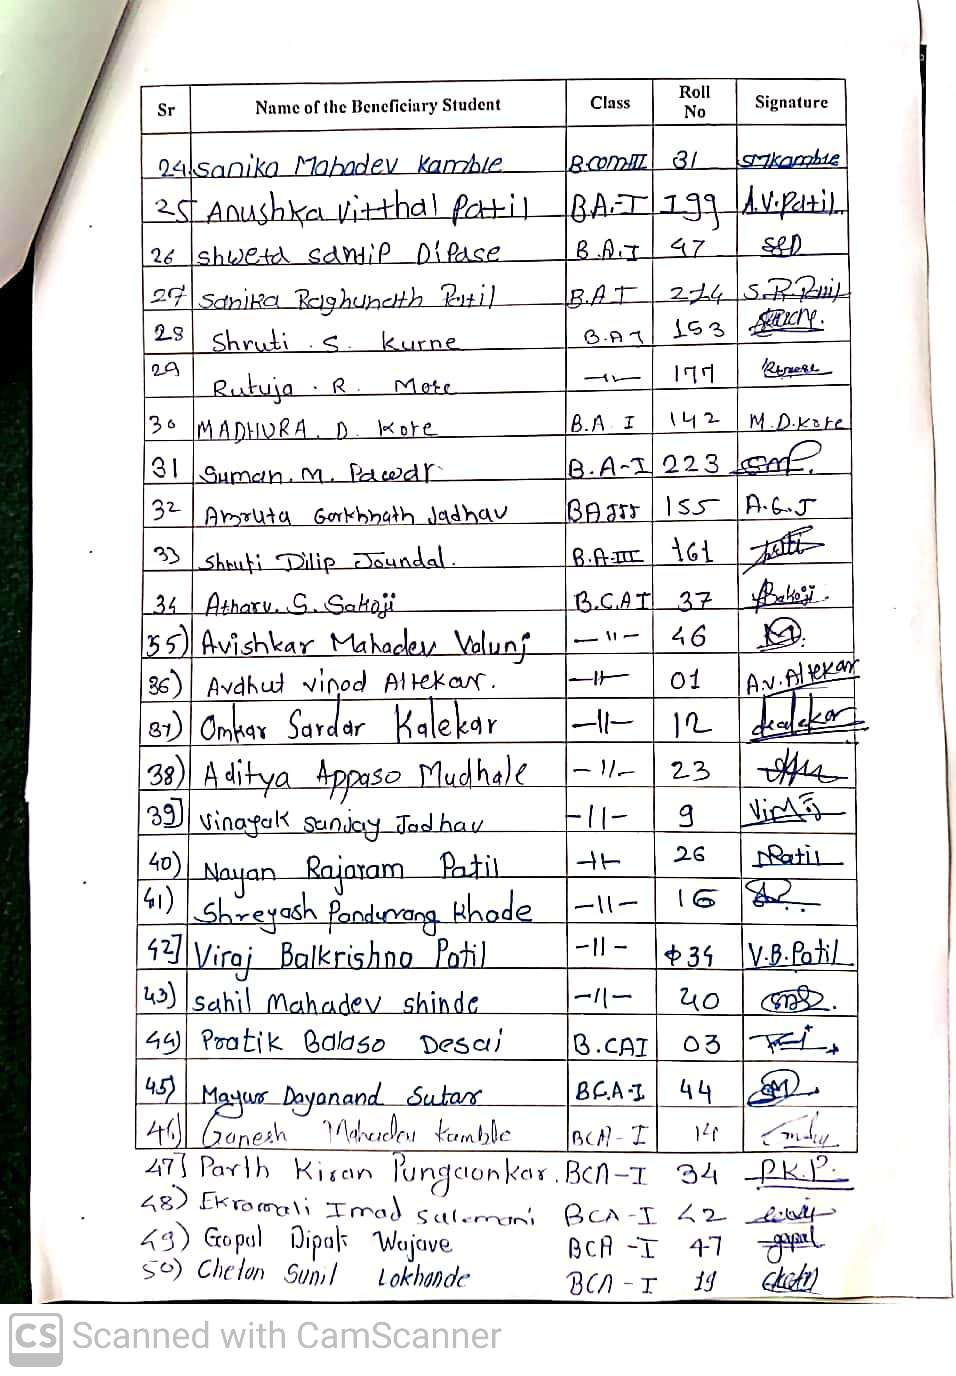 Sr Name of the Beneficiary Student Class Roll No Signature
24. Sanika Mahadev Kamble B.com III 31 SMKamble
25 Anushka Vitthal Patil B.A.-I 199 A.V.Patil
26 Shweta Sandip Dipase B.A.I 47 SSD
27 Sanika Raghunath Patil B.A I 214 S.R.Patil
28 Shruti . S. Kurne B.A I 153
29 Rutuja . R. More -11- 177
30 MADHURA. D. Kore B.A. I 142 M.D.Kore
31 Suman. M. Pawar B.A-I 223
32 Amruta Gorkhnath Jadhav BA III 155 A.G.J
33 Shruti Dilip Joundal. B.A-III 161
34 Atharv. S. Sakoji B.C.A I 37 Sakoji.
35) Avishkar Mahadev Valunj -11- 46
36) Avdhut vinod Altekar. -11- 01 A.V.Altekar
37) Omkar Sardar Kalekar -11- 12
38) Aditya Appaso Mudhale -11- 23
39] Vinayak Sanjay Jadhav -11- 9
40) Nayan Rajaram Patil -11- 26 NPatil
41) Shreyash Pandurang Khade -11- 16
42] Viraj Balkrishna Patil -11- 39 V.B.Patil
43) Sahil Mahadev Shinde -11- 40
44) Pratik Balaso Desai B.CAI 03
45) Mayur Dayanand Sutar BC.A-I 44
46) Ganesh Mahadev Kamble BCA-I 14
47] Parth Kiran Pungaonkar. BCA-I 34 P.K.P.
48) Ekramali Imad Sulemani BCA-I 42
49) Gopal Dipak Wajave BCA-I 47 gopal
50) Chetan Sunil Lokhande BCA-I 19 chetan
CS Scanned with CamScanner